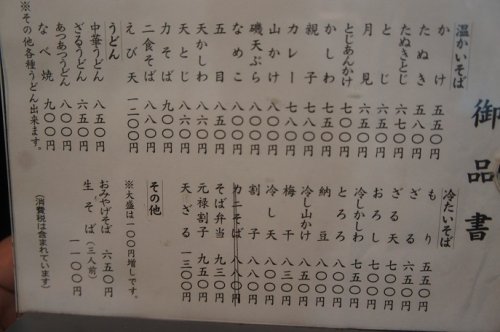 御品書
温かいそば
かけ 五五〇円
たぬき 五八〇円
たぬきとじ 六七〇円
月見 六五〇円
とじ 六五〇円
とじあんかけ 七〇〇円
かしわ 七五〇円
親子 七八〇円
カレー 七八〇円
山かけ 八〇〇円
磯天ぷら
なめこ
五目
天かしわ
天とじ 八六〇円
力そば 九〇〇円
二食そば 八八〇円
えび天 一二〇〇円
うどん
中華うどん 六五〇円
ざるうどん 六五〇円
あつあつうどん 八〇〇円
なべ焼 九〇〇円
※その他各種うどん出来ます。
冷たいそば
もり 五五〇円
ざる
ざる天
おろし
冷しかしわ
とろろ
納豆 八〇〇円
冷し山かけ
梅干 八三〇円
冷し天
割子
カニそば 八八〇円
そば弁当 九三〇円
元禄割子 九五〇円
天ざる 一三〇〇円
その他
※大盛は一〇〇円増しです。
おみやげそば 六五〇円
生そば(三人前) 一一〇〇円
(消費税は含まれています)